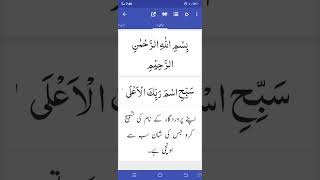 7:40
بِسْمِ اللّٰهِ الرَّحْمٰنِ
الرَّحِيْمِ
سَبِّحِ اسْمَ رَبِّكَ الْاَعْلَى
اپنے پروردگار کے نام کی تسبیح
کرو جس کی شان سب سے
اونچی ہے۔